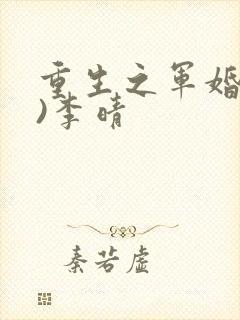 重生之军婚
)李晴
秦若虚